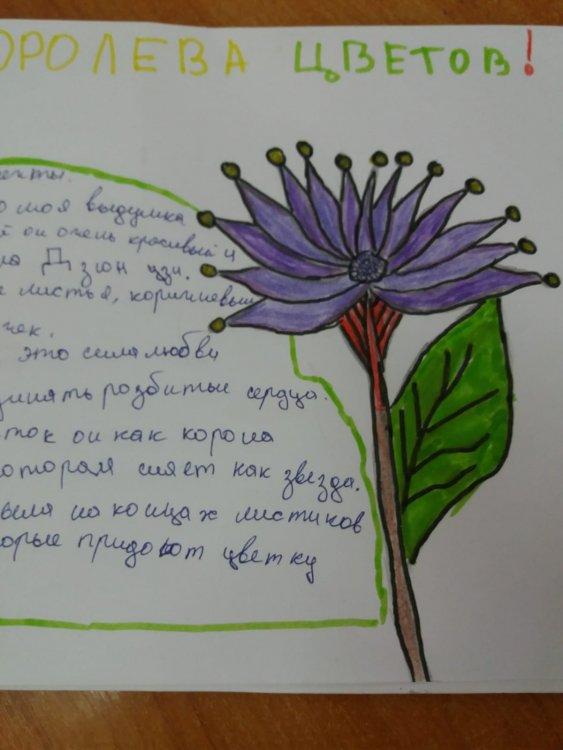 ОРОЛЕВА ЦВЕТОВ!
екты.
о моя выдумка
й он очень красивый и
ла Дзюн цзи.
листья, коричневый
чек.
это сила любви
динять розбитые сердца.
ток он как корона
которая сияет как звезда.
на концах листиков
орые придают цветку